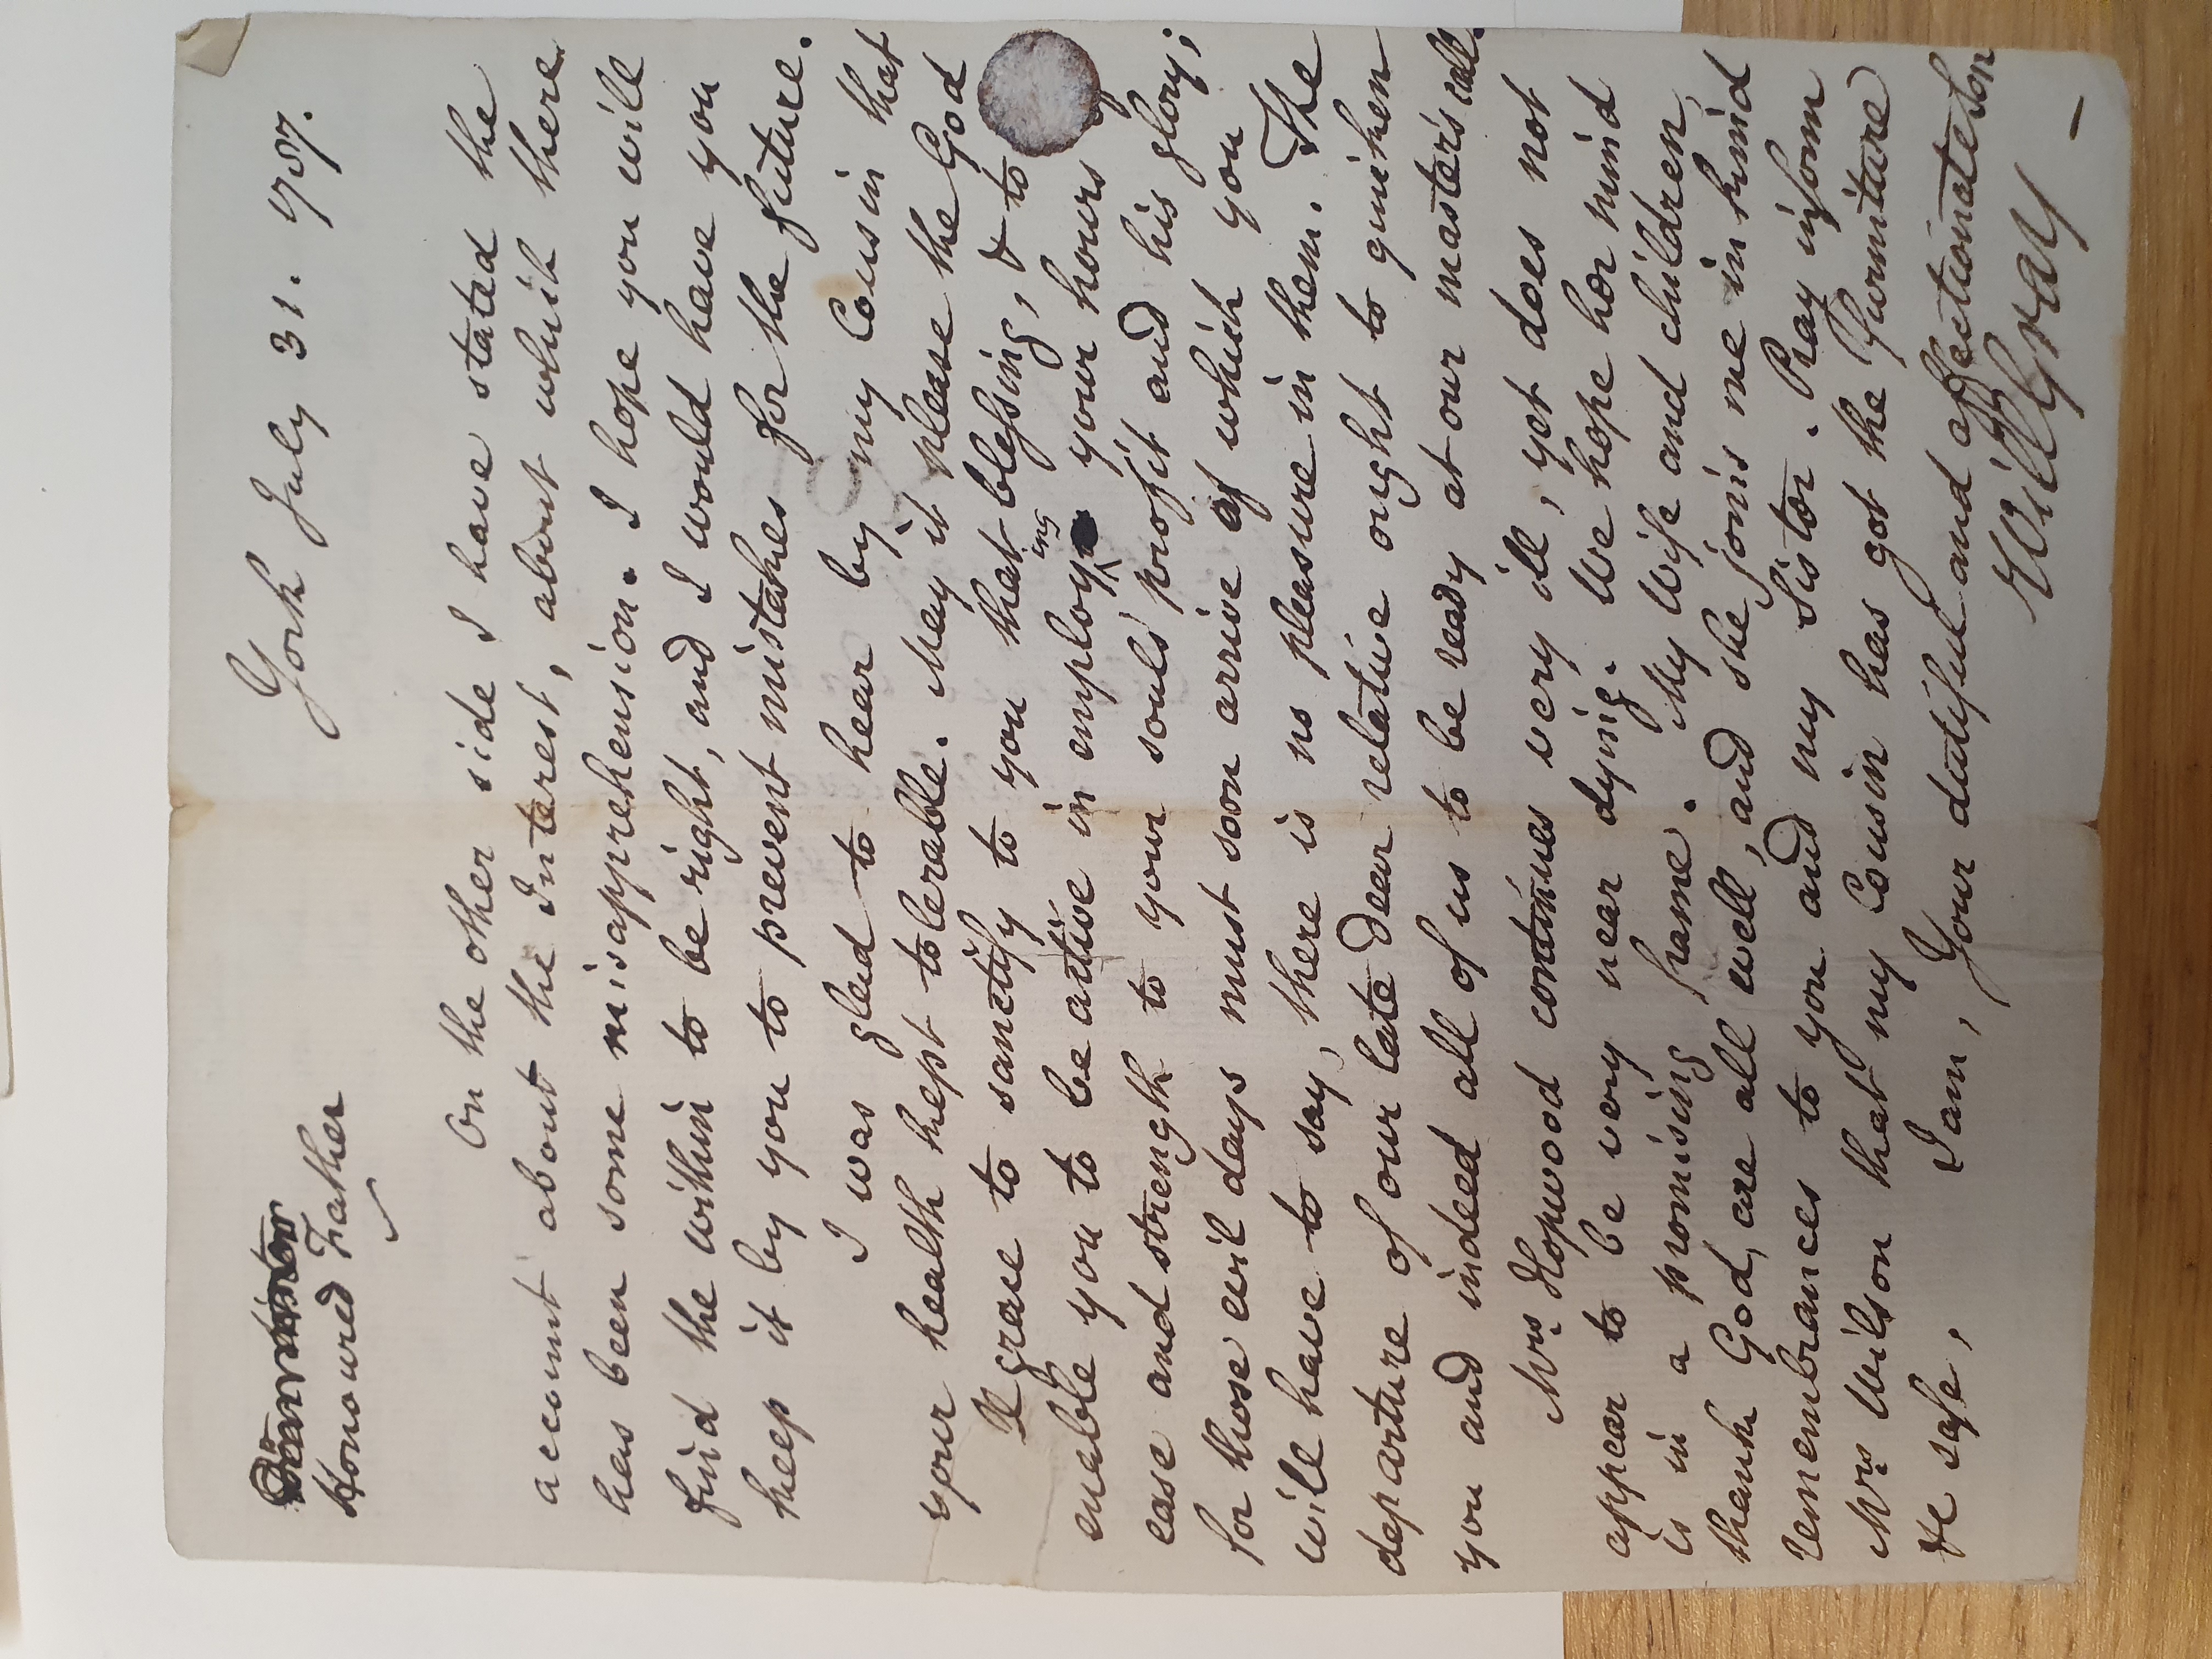 York July 31. 1787.
Honoured Father
On the other side I have stated the
account about the Interest, about which there
has been some misapprehension. I hope you will
find the within to be right, and I would have you
keep it by you to prevent mistakes for the future.
I was glad to hear by my Cousin that
your health kept tolerable. May it please the God
of grace to sanctify to you that blessing, & to
enable you to be active in employing your hours of
ease and strength to your souls' profit and his glory;
for those evil days must soon arrive of which you
will have to say, there is no pleasure in them. The
departure of our late dear relative ought to quicken
you and indeed all of us to be ready at our master's call.
Mrs. Hopwood continues very ill, yet does not
appear to be very near dying. We hope her mind
is in a promising frame. My wife and children,
thank God, are all well, and she joins me in kind
remembrances to you and my Sister. Pray inform
Mrs. Wilson that my Cousin has got the Furniture
&c safe, I am, Your dutiful and affectionate son
Will Gray